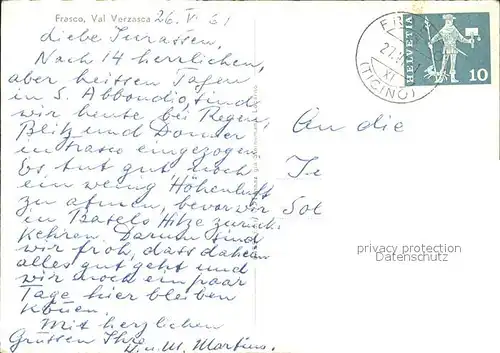 Frasco, Val Verzasca
26. V. 61
Liebe Insassen,
Nach 14 herrlichen,
aber heissen Tagen
in S. Abbondio, sind
wir heute bei Regen,
Blitz und Donner
in Frasco eingezogen.
Es tut gut noch
ein wenig Höhenluft
zu atmen, bevor wir
in Basels Hitze zurück-
kehren. Darum sind
wir froh, dass daheim
alles gut geht und
wir noch ein paar
Tage hier bleiben
können.
Mit herzlichen
Grüssen Ihre
H. u. M. Martins.
An die
Te
Sol
HELVETIA
10
(TICINO)
privacy protection
Datenschutz